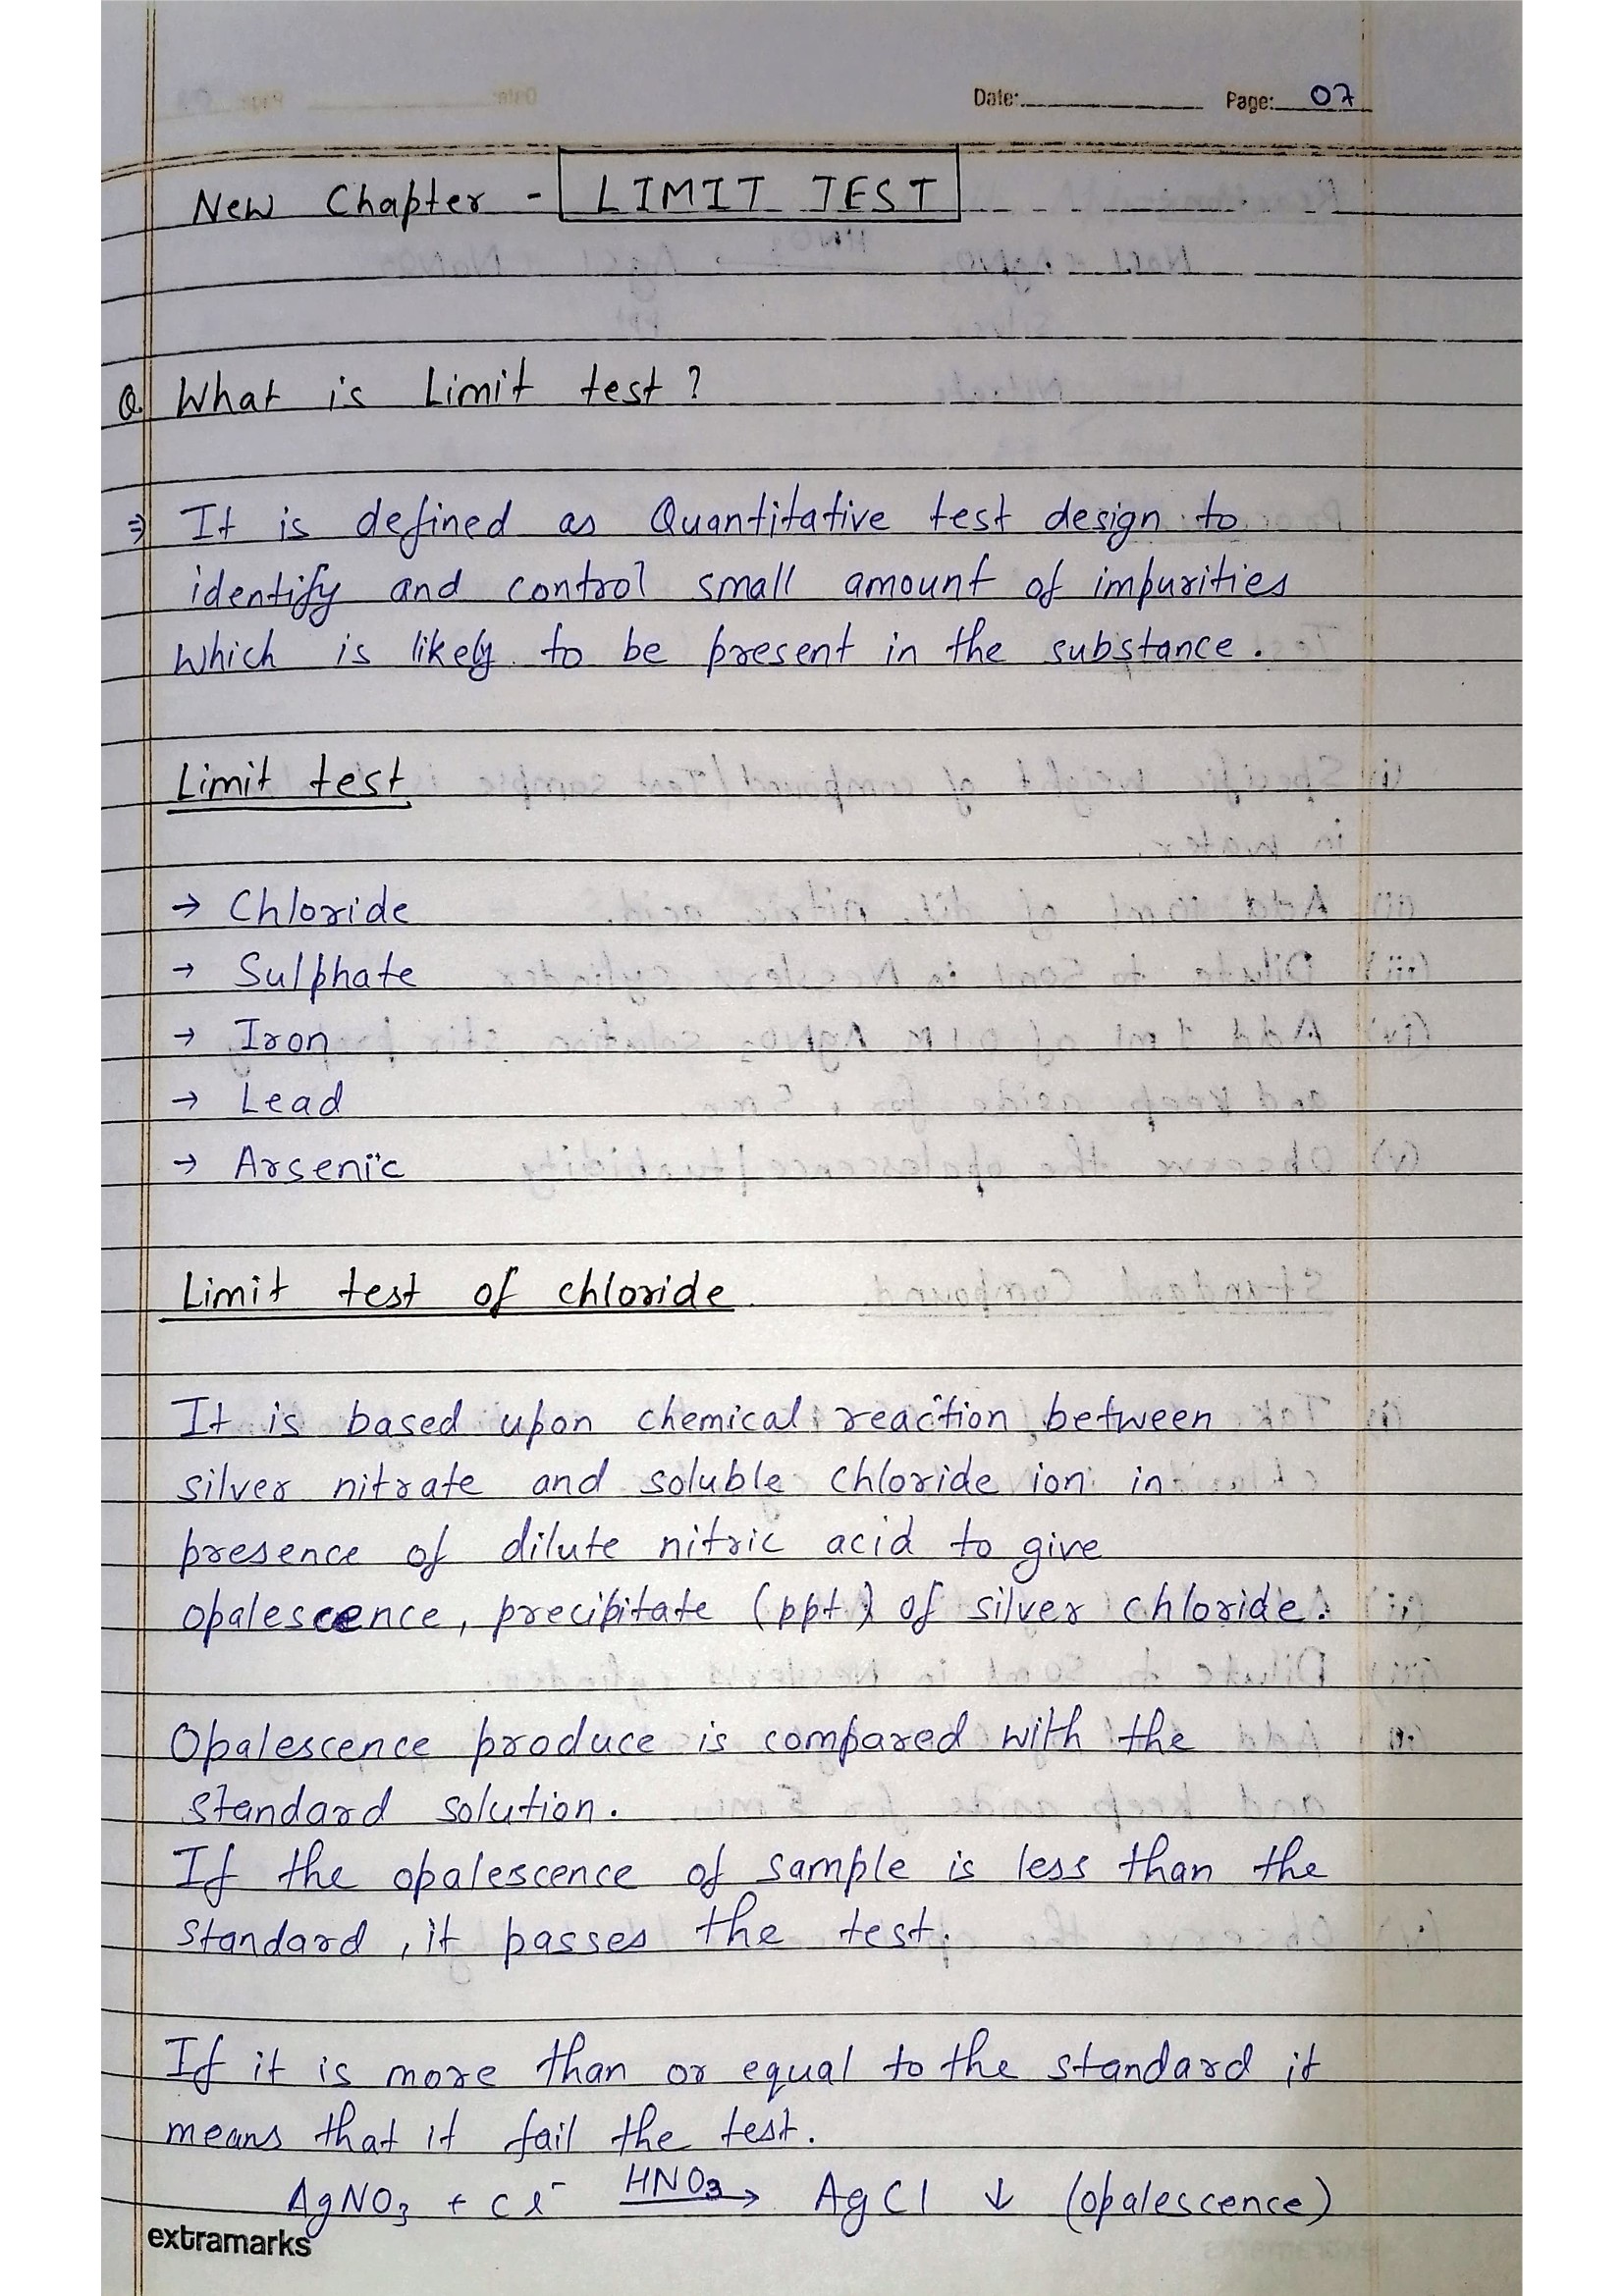 Date: Page: 07
New Chapter - LIMIT TEST
Q. What is Limit test?
⇒ It is defined as Quantitative test design to
identify and control small amount of impurities
which is likely to be present in the substance.
Limit test
→ Chloride
→ Sulphate
→ Iron
→ Lead
→ Arsenic
Limit test of chloride
It is based upon chemical reaction between
silver nitrate and soluble chloride ion in
presence of dilute nitric acid to give
opalescence, precipitate (ppt) of silver chloride.
Opalescence produce is compared with the
standard solution.
If the opalescence of sample is less than the
standard, it passes the test.
If it is more than or equal to the standard it
means that it fail the test.
AgNO₃ + Cl⁻ HNO₃→ AgCl ↓ (opalescence)
extramarks